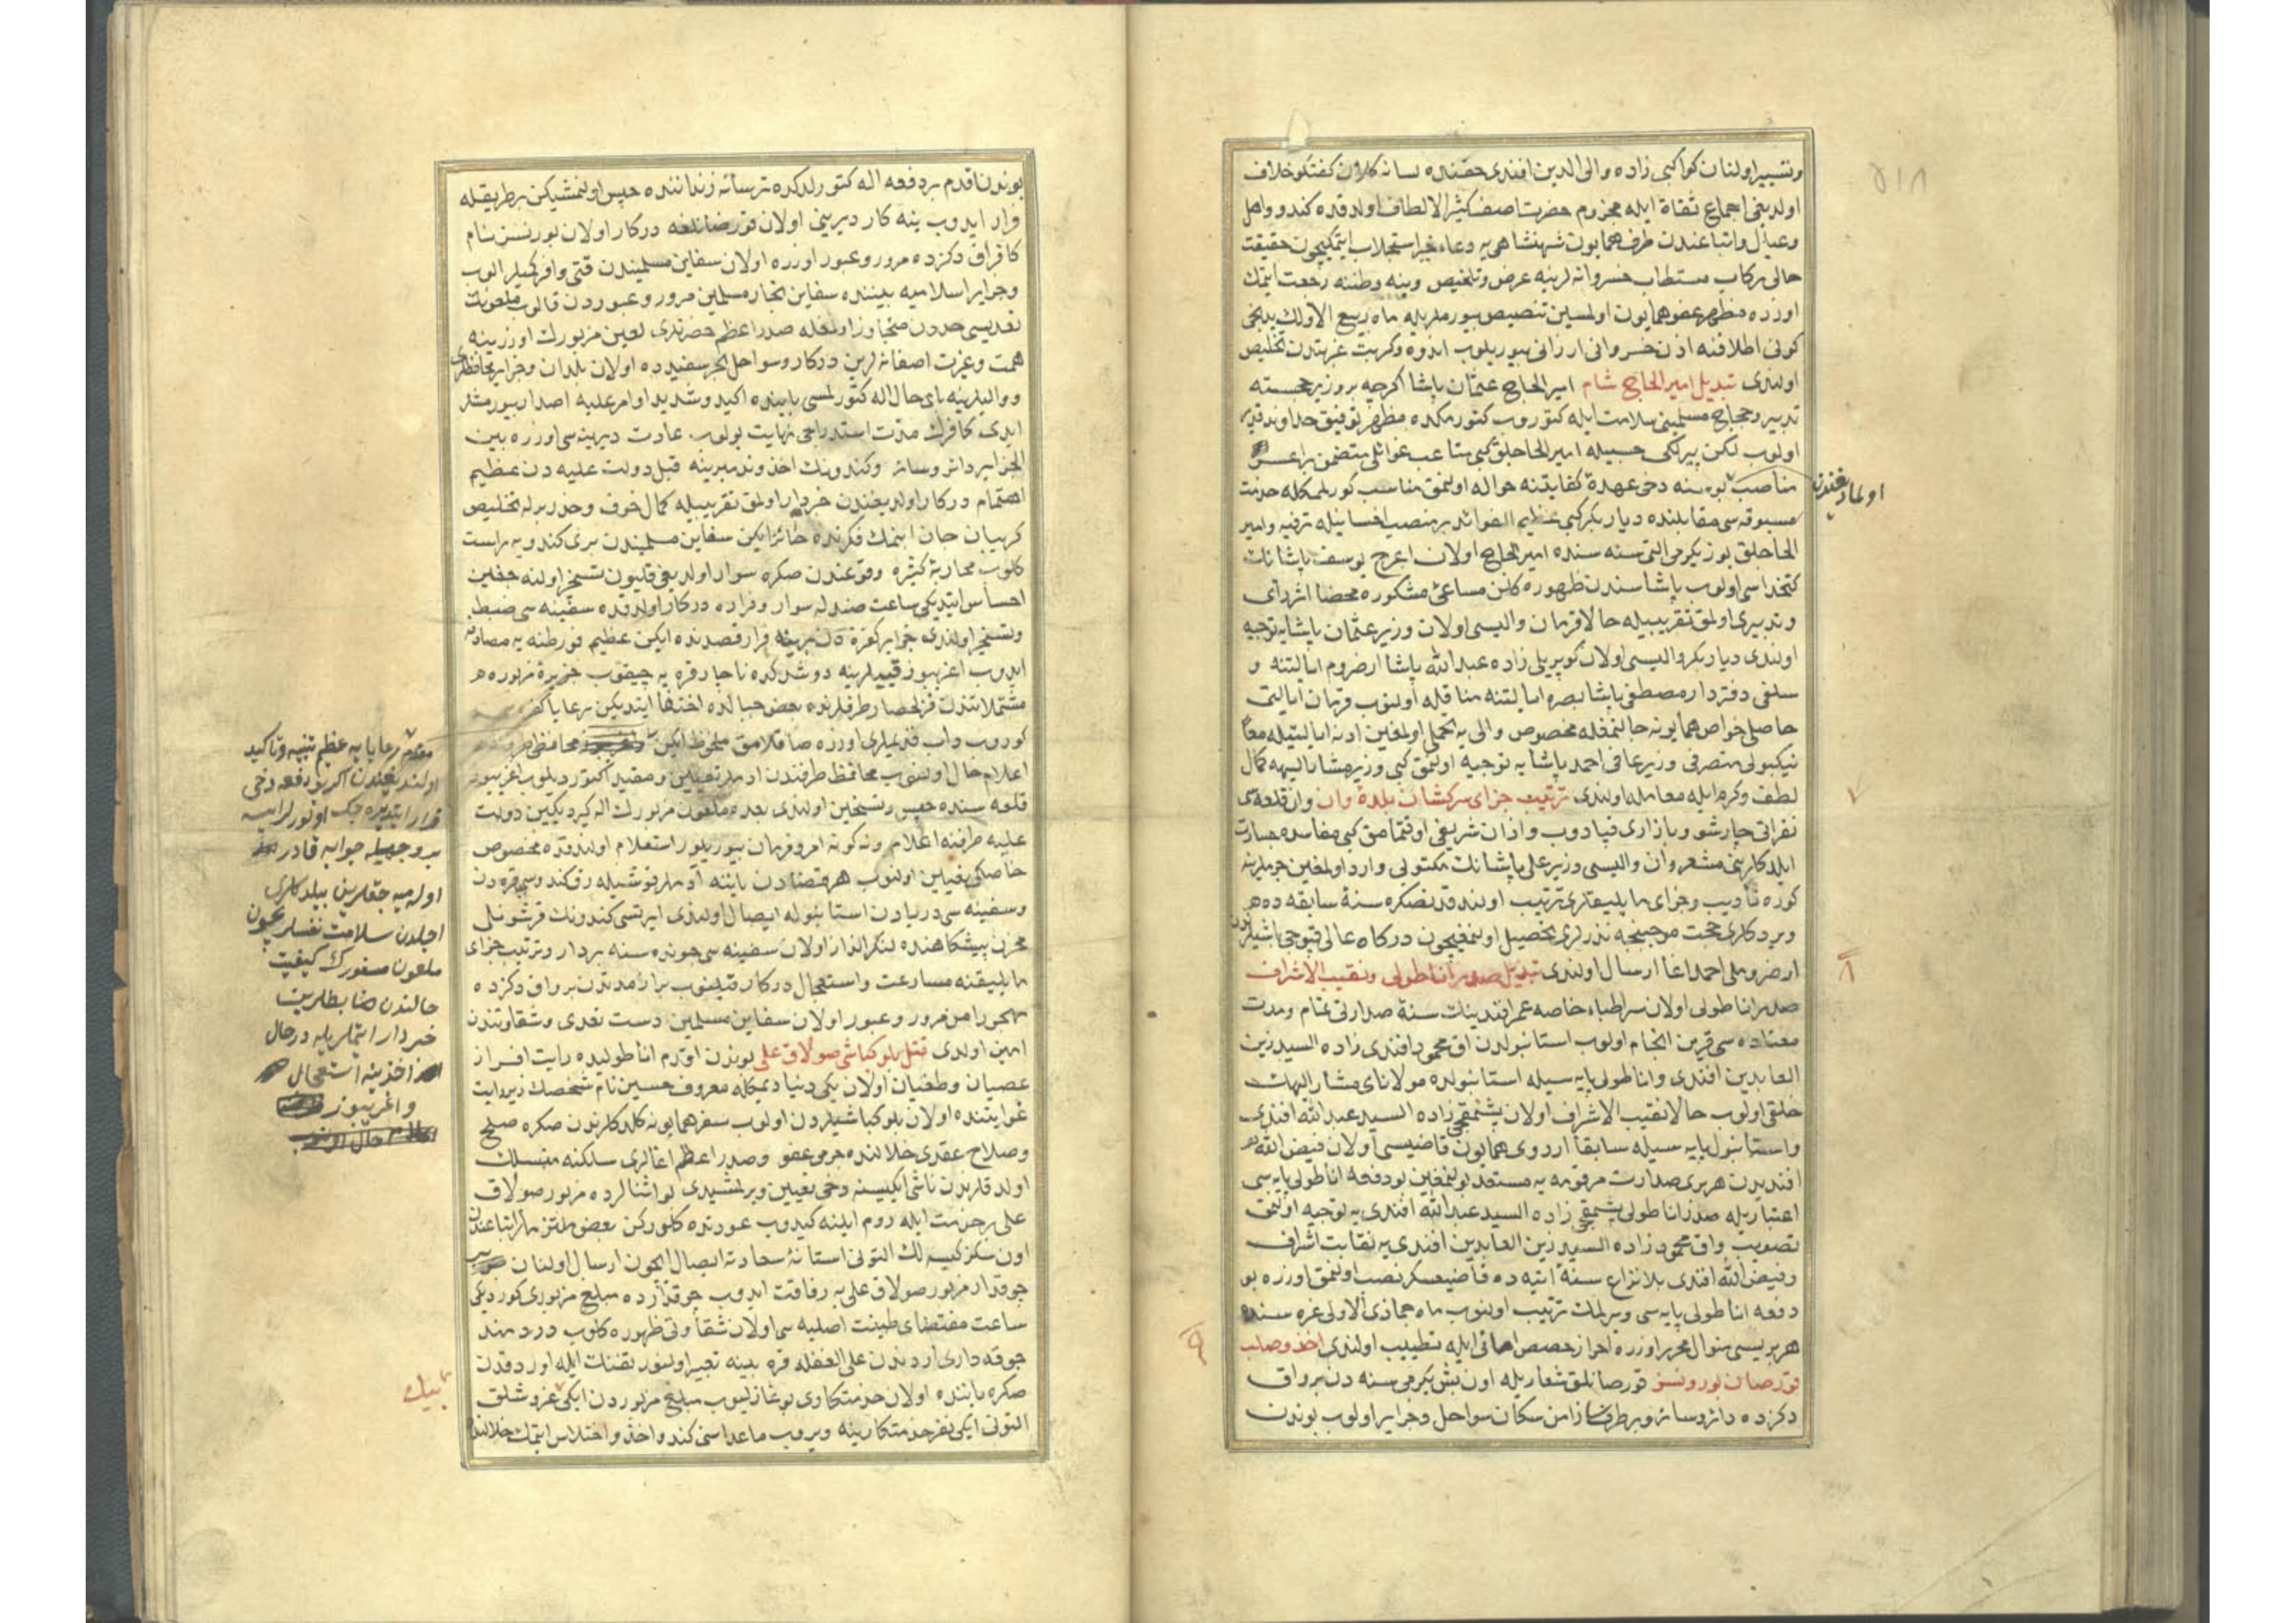 وتسيير اولنان كواكبى زاده والى الدين افندى حقنده لسانه كلان كفتكو خلاف
اولديغى اجماع ثقاة ايله مجزوم حضرت اصف كثير الالطاف اولدقده كندو واهل
وعيال واتباعندن طرف همايون شهنشاهى يه دعاء خير استجلاب ايتمكيچون حقيقت
حالى ركاب مستطاب خسروانه لرينه عرض وتلخيص وينه وطننه رجعت ايتمك
اوزره مظهر عفو همايون اولمسين تنصيص بيورملريله ماه ربيع الاولك يدنجى
كونى اطلاقنه اذن خسروانى ارزانى بيوريلوب اندوه وكربت غربتدن تخليص
اولندى تبديل امير الحاج شام امير الحاج عثمان پاشا اكرچه بر وزير خجسته
تدبير وحجاج مسلمينى سلامت ايله كتوروب كتورمكده مظهر توفيق خداوند قدير
اولوب لكن پيرلكى حسبيله امير الحاجلق كبى متاعب غوائلى متضمن
مناصب دخى عهدۀ كفايتنه حواله اولنمق مناسب كورلمكله خدمت
اولمادیغندن
مسبوقه سى مقابلنده ديار بكر كبى عظيم الفوائد بر منصب احسانيله ترفيه وامير
الحاجلق يوز يكرمى التى سنه سنده امير الحاج اولان اعرج يوسف پاشانك
كتخداسى اولوب پاشاسندن ظهوره كلن مساعئ مشكوره محضا اثر رأى
وتدبيرى اولمق تقريبيله حالا قرمان واليسى اولان وزير عثمان پاشايه توجيه
اولندى ديار بكر واليسى اولان كوپريلى زاده عبد الله پاشا ارضروم ايالتنه و
سلفى دفتردار مصطفى پاشا بصره ايالتنه مناقله اولنوب قرمان ايالتى
حاصلى خواص همايونه مخصوص والى يه اولمغين ادنه ايالتيله معًا
نيكبولى متصرفى وزير عافى احمد پاشايه توجيه اولنمق كبى وزير مشار اليهه كمال
لطف وكرم ايله معامله اولندى ترتيب جزاى سركشان بلدۀ وان وان قلعه سى
نفراتى چارشو وبازارى قپادوب واذان شريفى اوقتمامق كبى مفاسده جسارت
ايلدكلرينى مشعر وان واليسى وزير على پاشانك مكتوبى وارد اولمغين جرملرينه
كوره تأديب وجزاى ما يليقلرى ترتيب اولندقدنصكره سنۀ سابقه ده
ويردكلرى حجت موجبنجه نذرلرى تحصيل اولنمقيچون دركاه عالى قپوجى باشيلرندن
ارضروملى احمد اغا ارسال اولندى تبديل صدر اناطولى ونقيب الاشراف
صدر اناطولى اولان سراطباء خاصه عمر افندينك سنۀ صدارتى تمام ومدت
معتاده سى قرين انجام اولوب استانبولدن اق محمود افندى زاده السيد زين
العابدين افندى واناطولى پايه سيله استانبولده مولاناى مشار اليهك
خلفى اولوب حالا نقيب الاشراف اولان پشمقچى زاده السيد عبد الله افندى
واستانبول پايه سيله سابقا اردوى همايون قاضيسى اولان فيض الله
افنديدن هر برى صدارت مرقومه يه مستعد بولنمغين بو دفعه اناطولى پايه سى
اعتباريله صدر اناطولى پشمقچى زاده السيد عبد الله افندى يه توجيه اولنمق
تصويب واق محمود زاده السيد زين العابدين افندى يه نقابت اشراف
وفيض الله افندى بلا نزاع سنۀ اتيه ده قاضيعسكر نصب اولنمق اوزره بو
دفعه اناطولى پايه سى ويرلمك ترتيب اولنوب ماه جمادى الاولى غره سنده
هر بريسى منوال محرر اوزره احراز حصص امانى ايله تطييب اولندى اخذ وصلب
قورصان بورونسز قورصانلق شعاريله اون بش يكرمى سنه دن برو اق
دكزده دائر وسائر سكان سواحل وجزاير اولوب بوندن
بوندن اقدم بر دفعه اله كتورلدكده ترسانه زنداننده حبس اولنمشيكن بر طريقله
فرار ايدوب ينه كار ديرينى اولان قورصانلغه دركار اولان بورنسز نام
كافر اق دكزده مرور وعبور اوزره اولان سفاين مسلميندن قتى وافر كميلر الوب
وجزاير اسلاميه بيننده سفاين تجار مسلمين مرور وعبوردن قالوب ملعونك
تعديسى حددن متجاوز اولمغله صدر اعظم حضرتلرى لعين مزبورك اوزرينه
همت وغيرت اصفانه لرين دركار وسواحل بحر سفيدده اولان بلدان وجزاير محافظلرى
وواليلرينه باى حال اله كتورلمسى بابنده اكيد وشديد اوامر عليه اصدار بيورمشلر
ايدى كافرك مدت استدراجى نهايت بولوب عادت ديرينه سى اوزره بين
الجزاير دائر وسائر وكندونك اخذ وتدميرينه قبل دولت عليه دن عظيم
اهتمام دركار اولديغندن خبردار اولمق تقريبيله كمال خوف وحذر برله تخليص
كريبان جان ايتمك فكرنده حائر ايكن سفاين مسلميندن برى كندويه راست
كلوب محاربۀ كثيره وقوعندن صكره سوار اولديغى قليون تسخير اولنه جغين
احساس ايتديكى ساعت صندله سوار وفراره دركار اولدقده سفينه سى ضبط
وتسخير اولندى جزاير كفره دن برينه فرار قصدنده ايكن عظيم فورطنه يه مصادف
ايدوب اغريبوز دوشدكده ناچار قره يه چيقوب جزيرۀ مزبوره
مشتملاتندن قزلحصار طرفلرنده بعض جبالده اختفا ايتديكن رعايا
كوروب اوزره ملحوظ ايكن محافظى
اعلام حال اولنوب محافظ طرفندن ادملر تعيين ومقيدا كتوردیلوب اغريبوز
قلعه سنده حبس وتسجين اولندى بعده ملعون مزبورك اله كيرديكين دولت
عليه طرفنه اعلام ونه كونه امر وفرمان بيوريلور استعلام اولندقده مخصوص
خاصكى تعيين اولنوب هر قضادن ياننه آدملر قوشيله رق كندوسى قره دن
وسفينه سى دريادن استانبوله ايصال اولندى ايرتسى كندونك قرشونلى
مخزن پيشكاهنده لنكرانداز اولان سفينه سى جوندره سنه بردار وترتيب جزاى
ما يليقنه مسارعت واستعجال دركار قيلنوب برار مدتدن برو اق دكزده
مرور وعبور اولان سفاين مسلمين دست تعدى وشقاوتندن
امين اولدى قتل بلوكباشى صولاق على بوندن اقدم اناطوليده رايت افراز
عصيان وطغيان اولان يكى دنيا ديمكله معروف حسين نام شخصك زير رايت
غوايتنده اولان بلوكباشيلردن اولوب سفر همايونه كلدكلرندن صكره صلح
وصلاح عقدى خلالنده جرمى عفو وصدر اعظم اغالرى سلكنه منسلك
اولدقلرندن ناشى ايكيسنه دخى تعيين ويرلمشيدى بو اثنالرده مزبور صولاق
على بر خدمت ايله روم ايلنه كيدوب عودتده كلوركن بعض
اون سكز كيسه لك التونى استانۀ سعادته ايصال ايچون ارسال اولنان بر
چوقدار مزبور صولاق على يه رفاقت ايدوب چوقدارده مبلغ مزبورى كورديكى
ساعت مقتضاى طينت اصليه سى اولان شقاوتى ظهوره كلوب دردمند
چوقه دارى اردندن على الغفله قره بينه تعبير اولنور تفنك ايله اوردقدن
صكره ياننده اولان خدمتكارى بوغازليوب مبلغ مزبوردن ايكى غروشلق
بيك
التونى ايكى نفر خدمتكارينه ويروب ماعداسنى كندو اخذ واختلاس ايتمك خلالنده
مقدم رعايايه عظيم تنبيه وتأكيد
اولنديغندن اكر بو دفعه دخى
فرار ايتديره جك اولورلر ايسه
بر وجهيله جوابه قادر
اوله ميه جقلرين بيلدكلرى
اجلدن سلامت نفسلريچون
ملعون مسفورك كيفيت
حالندن ضابطلرين
خبردار ايتملريله درحال
اخذينه استعجال
واغريبوز